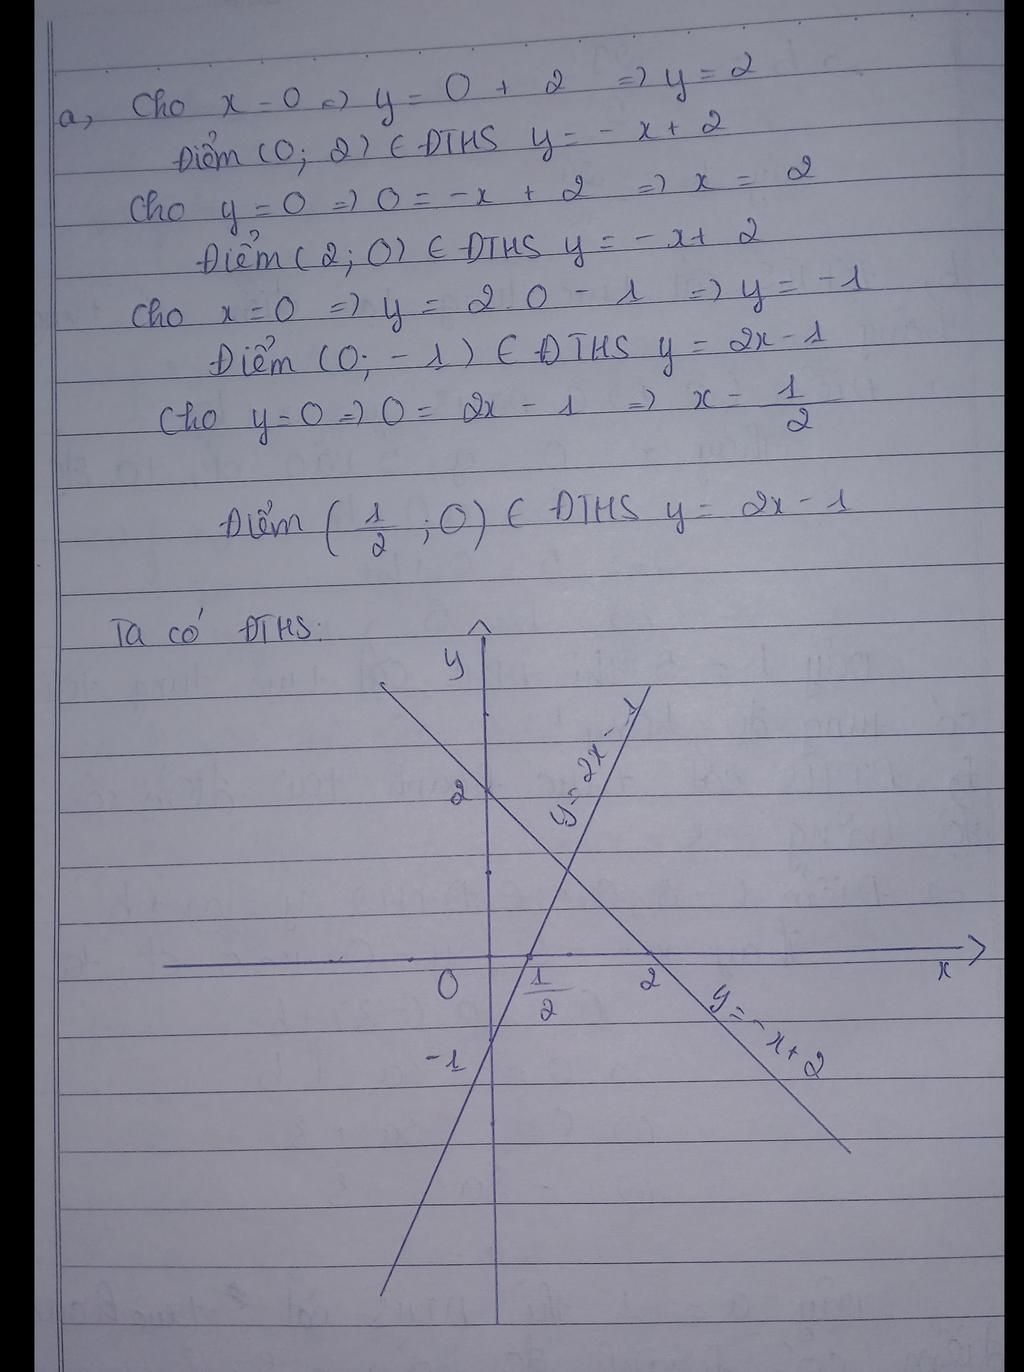 a, Cho x = 0 => y = 0 + 2 => y = 2
Điểm (0; 2) ∈ ĐTHS y = - x + 2
Cho y = 0 => 0 = -x + 2 => x = 2
Điểm (2; 0) ∈ ĐTHS y = - x + 2
Cho x = 0 => y = 2.0 - 1 => y = -1
Điểm (0; -1) ∈ ĐTHS y = 2x - 1
Cho y = 0 => 0 = 2x - 1 => x = 1/2
Điểm (1/2; 0) ∈ ĐTHS y = 2x - 1
Ta có ĐTHS:
y
y = 2x - 1
2
x
0
1/2
2
y = - x + 2
-1